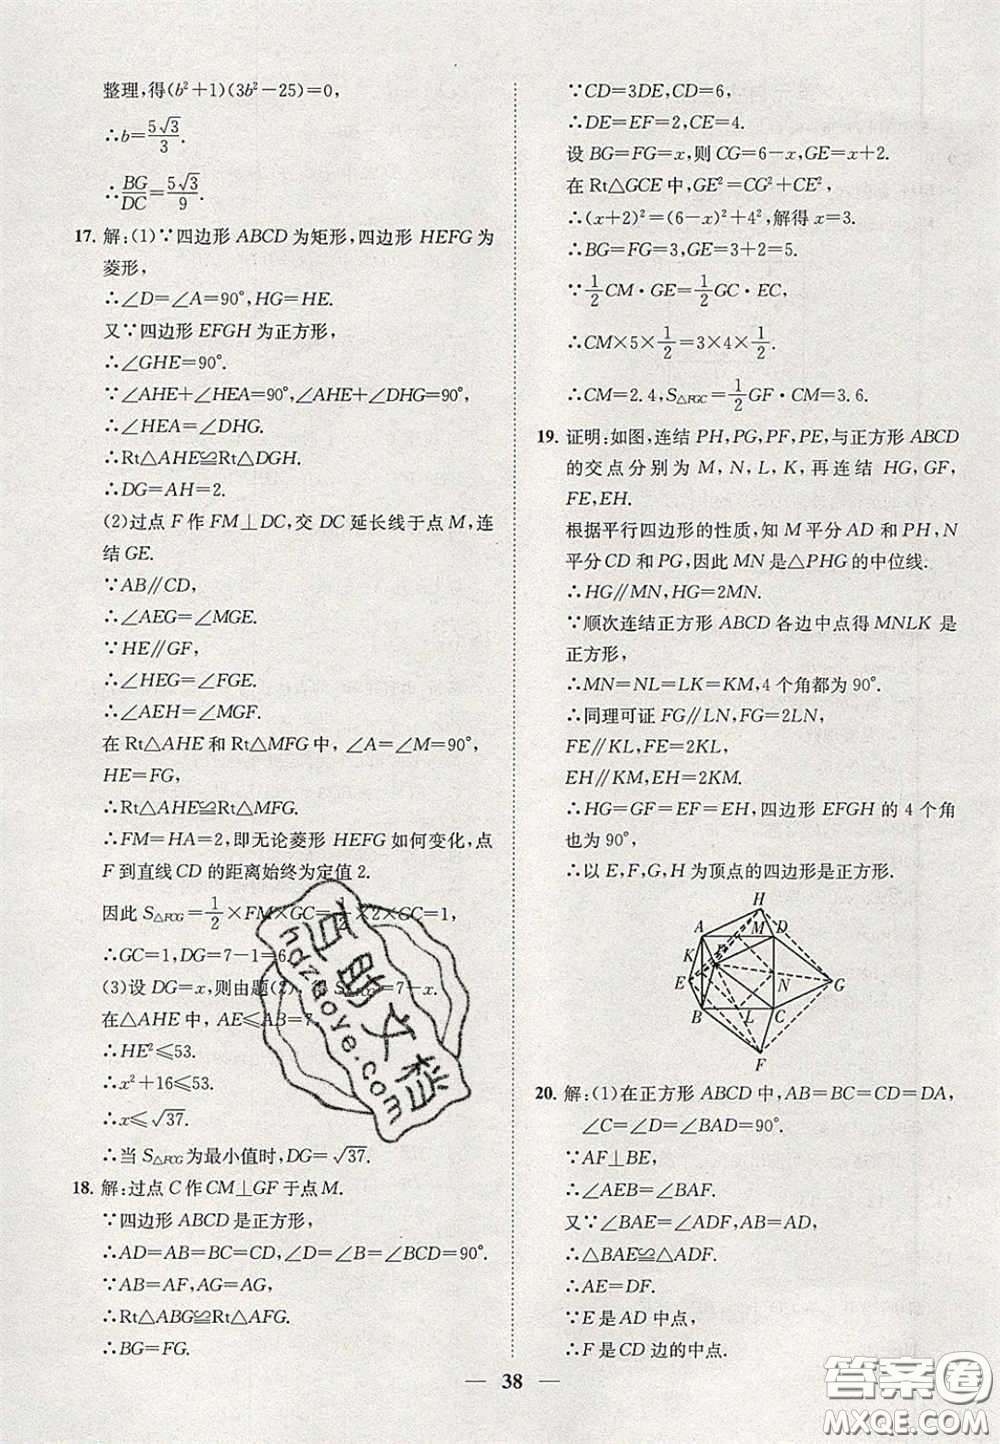 整理,得(b²+1)(3b²-25)=0,
∴b=5√3/3.
∴BG/DC=5√3/9.
17. 解:(1)∵四边形 ABCD 为矩形,四边形 HEFG 为
菱形,
∴∠D=∠A=90°,HG=HE.
又∵四边形 EFGH 为正方形,
∴∠GHE=90°.
∵∠AHE+∠HEA=90°,∠AHE+∠DHG=90°,
∴∠HEA=∠DHG.
∴Rt△AHE≌Rt△DGH.
∴DG=AH=2.
(2)过点 F 作 FM⊥DC,交 DC 延长线于点 M,连
结 GE.
∵AB∥CD,
∴∠AEG=∠MGE.
∵HE∥GF,
∴∠HEG=∠FGE.
∴∠AEH=∠MGF.
在 Rt△AHE 和 Rt△MFG 中,∠A=∠M=90°,
HE=FG,
∴Rt△AHE≌Rt△MFG.
∴FM=HA=2,即无论菱形 HEFG 如何变化,点
F 到直线 CD 的距离始终为定值 2.
因此 S△FCG=1/2×FM×GC=1/2×2×GC=1,
∴GC=1,DG=7-1=6.
(3)设 DG=x,则由题(2),得 S =7-x.
在△AHE 中,AE≤AB=7,
∴HE²≤53.
∴x²+16≤53.
∴x≤√37.
∴当 S△FCG为最小值时,DG=√37.
18. 解:过点 C 作 CM⊥GF 于点 M.
∵四边形 ABCD 是正方形,
∴AD=AB=BC=CD,∠D=∠B=∠BCD=90°.
∵AB=AF,AG=AG,
∴Rt△ABG≌Rt△AFG.
∴BG=FG.
∵CD=3DE,CD=6,
∴DE=EF=2,CE=4.
设 BG=FG=x,则 CG=6-x,GE=x+2.
在 Rt△GCE 中,GE²=CG²+CE²,
∴(x+2)²=(6-x)²+4²,解得 x=3.
∴BG=FG=3,CG=3,GE=5.
∵1/2CM·GE=1/2GC·EC,
∴CM×5×1/2=3×4×1/2.
∴CM=2.4,S△FGC=1/2GF·CM=3.6.
19. 证明:如图,连结 PH,PG,PF,PE,与正方形 ABCD
的交点分别为 M,N,L,K,再连结 HG,GF,
FE,EH.
根据平行四边形的性质,知 M 平分 AD 和 PH,N
平分 CD 和 PG,因此 MN 是△PHG 的中位线.
∴HG∥MN,HG=2MN.
∵顺次连结正方形 ABCD 各边中点得 MNLK 是
正方形,
∴MN=NL=LK=KM,4 个角都为 90°.
∴同理可证 FG∥LN,FG=2LN,
FE∥KL,FE=2KL,
EH∥KM,EH=2KM.
∴HG=GF=EF=EH,四边形 EFGH 的 4 个角
也为 90°,
∴以 E,F,G,H 为顶点的四边形是正方形.
H
A M D
K
E N G
B L C
F
20. 解:(1)在正方形 ABCD 中,AB=BC=CD=DA,
∠C=∠D=∠BAD=90°.
∵AF⊥BE,
∴∠AEB=∠BAF.
又∵∠BAE=∠ADF,AB=AD,
∴△BAE≌△ADF.
∴AE=DF.
∵E 是 AD 中点,
∴F 是 CD 边的中点.
— 38 —
百助文档
hdzaoye.com
答案圈
MXQE.COM